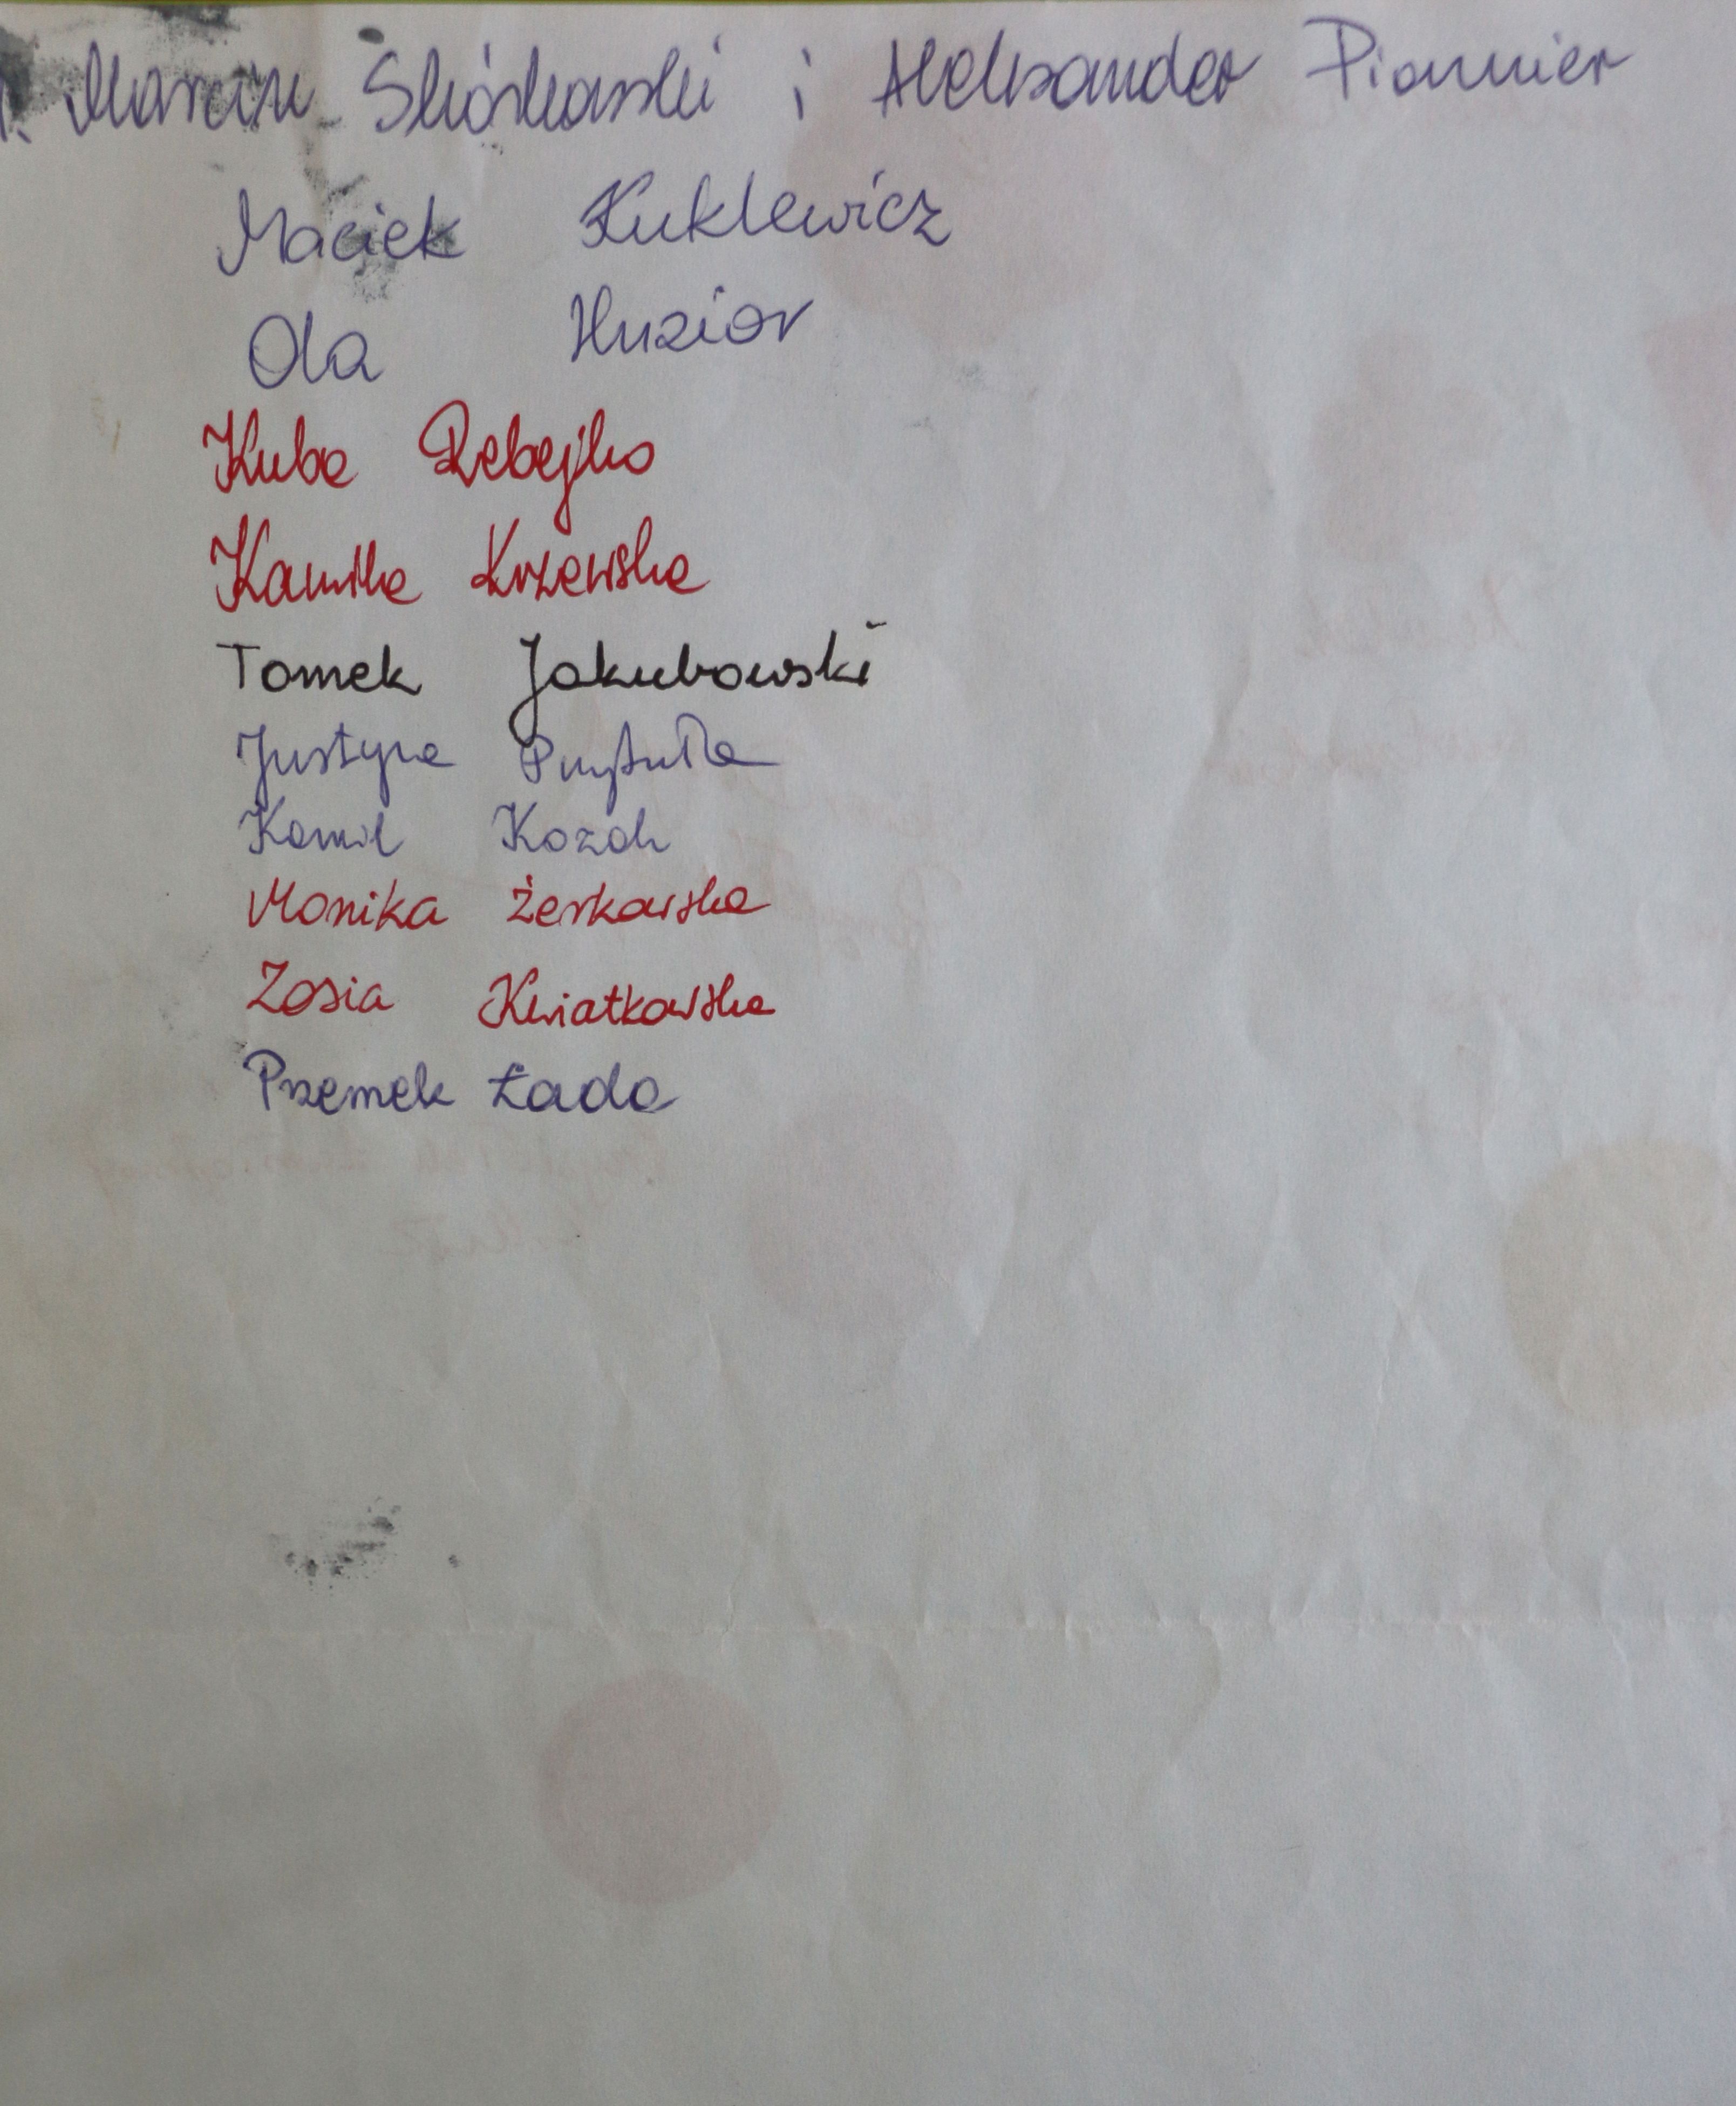 Marcin Skórkowski i Aleksander Pionnier
Maciek Kuklewicz
Ola Huzior
Kuba Rebejko
Kamilka Krzewska
Tomek Jakubowski
Justyna Przytuła
Kamil Kozak
Monika Żerkowska
Zosia Kwiatkowska
Przemek Łada